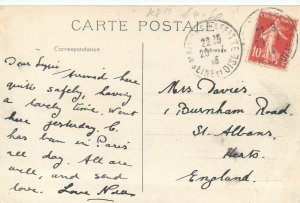 CARTE POSTALE
Correspondance
Dear Lizzie
Arrived here
quite safely, having
a lovely time. Went
here yesterday. C.
has been in Paris
all day. All are
well, and send
love. Love
22 15
SEINE ET OISE
10
Mrs Davies,
1 Burnham Road.
St. Albans,
Herts.
England.